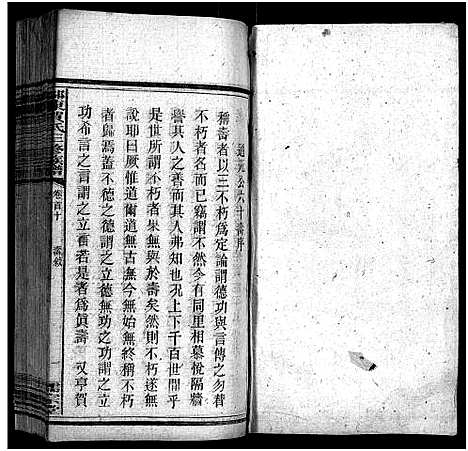 達九公六十壽序
稱壽者以三不朽為定論謂德功與言傳之勿替
不朽者名而已竊謂不然今有同里相慕悅隔牆
譽其人之善而其人弗知也況上下千百世間乎
是世所謂不朽者果無與於壽矣然則不朽遂無
說耶曰厥惟道爾道無古無今無始無終稱不朽
者歸焉蓋不德之德謂之立德無功之功謂之立
功希言之言謂之立言若是者為真壽 㕥亨質
氏三修族譜
卷首十
壽敘